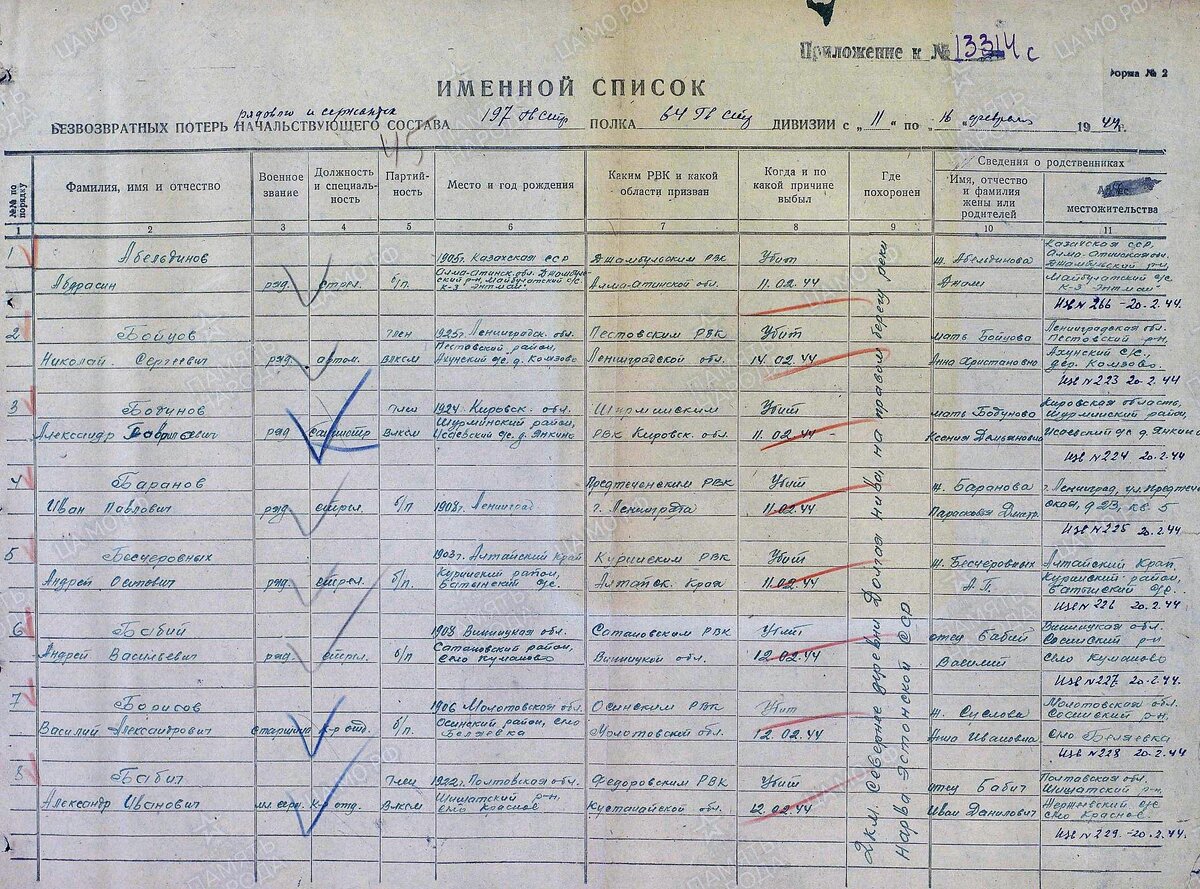 Приложение к № 13314 с
Форма № 2
ИМЕННОЙ СПИСОК
рядового и сержантск
БЕЗВОЗВРАТНЫХ ПОТЕРЬ НАЧАЛЬСТВУЮЩЕГО СОСТАВА 197 Гв Стр. ПОЛКА 64 Гв Стр ДИВИЗИИ с „ 11 “ по „ 16 “ февраля 1944г.
45
№№ по порядку
Фамилия, имя и отчество
Военное звание
Должность и специальность
Партийность
Место и год рождения
Каким РВК и какой области призван
Когда и по какой причине выбыл
Где похоронен
Сведения о родственниках
Имя, отчество и фамилия жены или родителей
местожительства
1 2 3 4 5 6 7 8 9 10 11
1 Абельдинов 1905г. Казахская сср Джамбульским РВК Убит ж. Абельдинова Казахская сср,
Абдрасин ряд. стрел. б/п. Алма-Атинск. обл. Джамбульский р-н, Алма-Атинской обл. 11.02.44 Алма-Атинская обл. Джамбулский р-н
Майбулатский с/с. к-з "Энтмак" Майбулатский с/с к-з "Энтмак"
Изв №266 -20.2.44
2 Бойцов член 1925г. Ленинградск. обл. Пестовским РВК Убит мать Бойцова Ленинградская обл.
Николай Сергеевич ряд. артом. Влксм Пестовский район, Ленинградской обл. 14.02.44 Анна Христановна Пестовский р-н,
Ахунский с/с. д. Комзово Ахунский с/с, дер. Комзово.
Изв №223 20.2.44
3 Бодунов член 1924г. Кировск. обл. Шурминским Убит мать Бодуново Кировская область,
Александр Гаврилович ряд санинстр Влксм Шурминский район, РВК Кировск. обл. 11.02.44 Ксения Демьяновна Шурминский район,
Исаевский с/с д. Янкино Исаевский с/с д. Янкино
Изв №224 20.2.44
4 Баранов Предтеченским РВК Убит ж. Баранова г. Ленинград, ул. Предтечен
Иван Павлович ряд стрел. б/п 1908г. Ленинград г. Ленинграда 11.02.44 Парасковья Дмитр. ская, д 23, кв 5
Изв №225 20.2.44
5 Бесчеровных 1903г. Алтайский Край Курьинским РВК Убит ж. Бесчеровных Алтайский Край,
Андрей Осипович ряд. стрел. б/п. Курьинский район, Алтайск. Края 11.02.44 А.Г. Курьинский район,
Батынский с/с. Батышский с/с.
Изв №226 20.2.44
6 Бабий 1908 Винницкая обл. Сатановским РВК Убит отец Бабий Винницкая обл.
Андрей Васильевич ряд. стрел. б/п Сатановский район, Винницкой обл. 12.02.44 Василий Сосинский р-н
Село Куманово село Куманово
Изв №227 20.2.44.
7 Борисов 1906 Молотовская обл. Осинским РВК Убит ж. Суслова Молотовская обл.
Василий Александрович старшина к-р отд. б/п. Осинский район, село Молотовской обл. 12.02.44 Анна Ивановна Сосинский р-н,
Беляевка село Беляевка
Изв №228 20.2.44
8 Бабич член 1922г. Полтовская обл. Федоровским РВК Убит отец Бабич Полтавская обл.
Александр Иванович мл серж. к-р отд. Влксм Шишатский р-н, Кустанайской обл. 12.02.44 Иван Данилович Шишатский р-н
село Красное с/с село Красное.
Изв №229.-20.2.44.
2 км. Севернее деревни Долгая нива, на правом берегу реки
Нарва Эстонской ССР
ЦАМО.РФ
ПАМЯТЬ НАРОДА